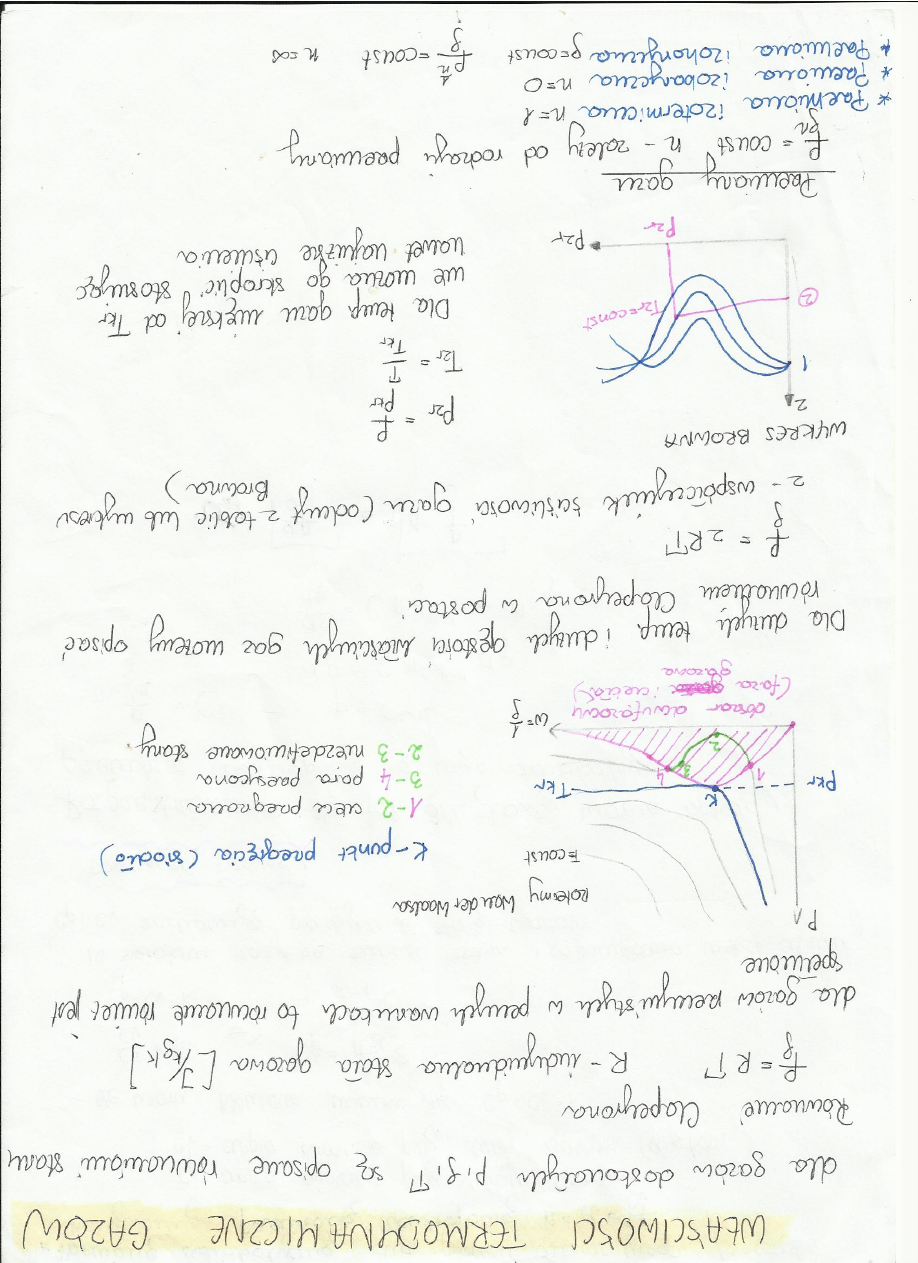 WŁAŚCIWOŚCI TERMODYNAMICZNE GAZÓW
dla gazów doskonałych p, ρ, T są opisane równaniami stanu
Równanie Clapeyrona
p/ρ = RT R - indywidualna stała gazowa [J/kgK]
dla gazów rzeczywistych w pewnych warunkach to równanie również jest
spełnione
p
izotermy Wan der Waalsa
T=const
K - punkt przegięcia (siodło)
pkr
K
Tkr
1-2 ciecz przegrzana
3-4 para przesycona
2-3 niezdefiniowane stany
1
2
3
4
w=1/ρ
obszar dwufazowy
(faza i ciekła)
gazowa
Dla dużych temp. i dużych gęstości właściwych gaz możemy opisać
równaniem Clapeyrona w postaci
p/ρ = zRT
z - współczynnik ściśliwości gazu (odczyt z tablic lub wykresu
Browna)
WYKRES BROWNA
z
1
②
Tzr=const
pzr
pzr
pzr = p/pkr
Tzr = T/Tkr
Dla temp. gazu większej od Tkr
nie można go skroplić stosując
nawet najwyższe ciśnienia
Przemiany gazu
p/ρⁿ = const n - zależy od rodzaju przemiany
* Przemiana izotermiczna n=1
* Przemiana izobaryczna n=0
* Przemiana izochoryczna ρ=const p^(1/n)/ρ = const n=∞